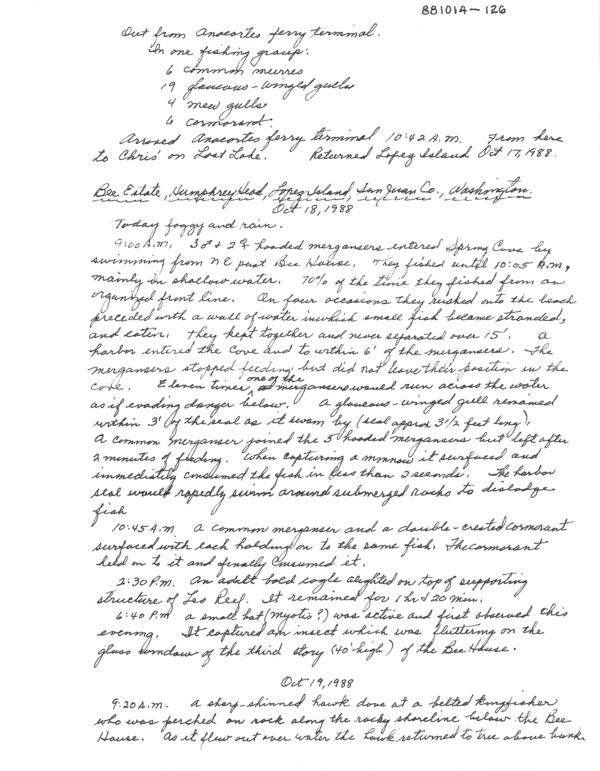 881014-126
Out from Anacortes ferry terminal.
In one fishing group:
6 common murres
19 glaucous-winged gulls
4 mew gulls
6 cormorant.
Arrived Anacortes ferry terminal 10:42 A.M. From here
to Chris' on Lost Lake. Returned Lopez Island Oct 17, 1988.
Bee Estate, Humphrey Head, Lopez Island, San Juan Co., Washington.
Oct 18, 1988
Today foggy and rain.
9:00 A.M. 3♂ + 2♀ hooded mergansers entered Spring Cove by
swimming from NE past Bee House. They fished until 10:05 A.M.,
mainly in shallow water. 70% of the time they fished from an
organized front line. On four occasions they rushed onto the beach
preceded with a wall of water in which small fish became stranded,
and eaten. They kept together and never separated over 15'. A
harbor entered the Cove and to within 6' of the mergansers. The
mergansers stopped feeding but did not leave their position in the
cove. Eleven times, one of the mergansers would run across the water
as if evading danger below. A glaucous-winged gull remained
within 3' of the seal as it swam by (seal approx 3½ feet long).
A common merganser joined the 5 hooded mergansers but left after
2 minutes of feeding. When capturing a minnow it surfaced and
immediately consumed the fish in less than 2 seconds. The harbor
seal would rapedly swim around submerged rocks to dislodge
fish
10:45 A.M. A common merganser and a double-crested cormorant
surfaced with each holding on to the same fish. The cormorant
held on to it and finally consumed it.
2:30 P.M. An adult bald eagle alighted on top of supporting
structure of Leo Reef. It remained for 1 hr + 20 min.
6:40 P.M a small bat (myotis?) was active and first observed this
evening. It captured an insect which was fluttering on the
glass window of the third story (40' high) of the Bee House.
Oct 19, 1988
9:20 A.M. A sharp-shinned hawk dove at a belted kingfisher
who was perched on rock along the rocky shoreline below the Bee
House. As it flew out over water the hawk returned to tree above bank.